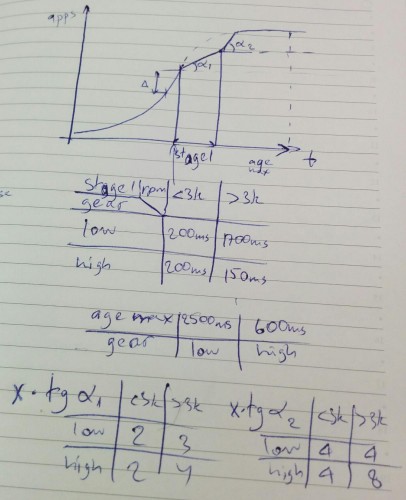 apps
Δ
α₁
α₂
stage1
age max
t
stage1 | rpm | <3k | >3k
gear
low | 200ms | 1700ms
high | 200ms | 150ms
age max | 2500ms | 600ms
gear | low | high
x · tg α₁ | <3k | >3k
low | 2 | 3
high | 2 | 4
x · tg α₂ | <3k | >3k
low | 4 | 4
high | 4 | 8